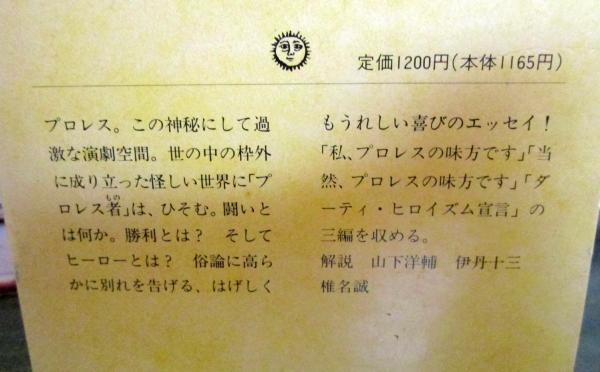 定価1200円(本体1165円)
プロレス。この神秘にして過
激な演劇空間。世の中の枠外
に成り立った怪しい世界に「プ
ロレス者」は、ひそむ。闘いと
もの
は何か。勝利とは? そして
ヒーローとは? 俗論に高ら
かに別れを告げる、はげしく
もうれしい喜びのエッセイ!
「私、プロレスの味方です」「当
然、プロレスの味方です」「ダ
ーティ・ヒロイズム宣言」の
三編を収める。
解説 山下洋輔 伊丹十三
椎名誠